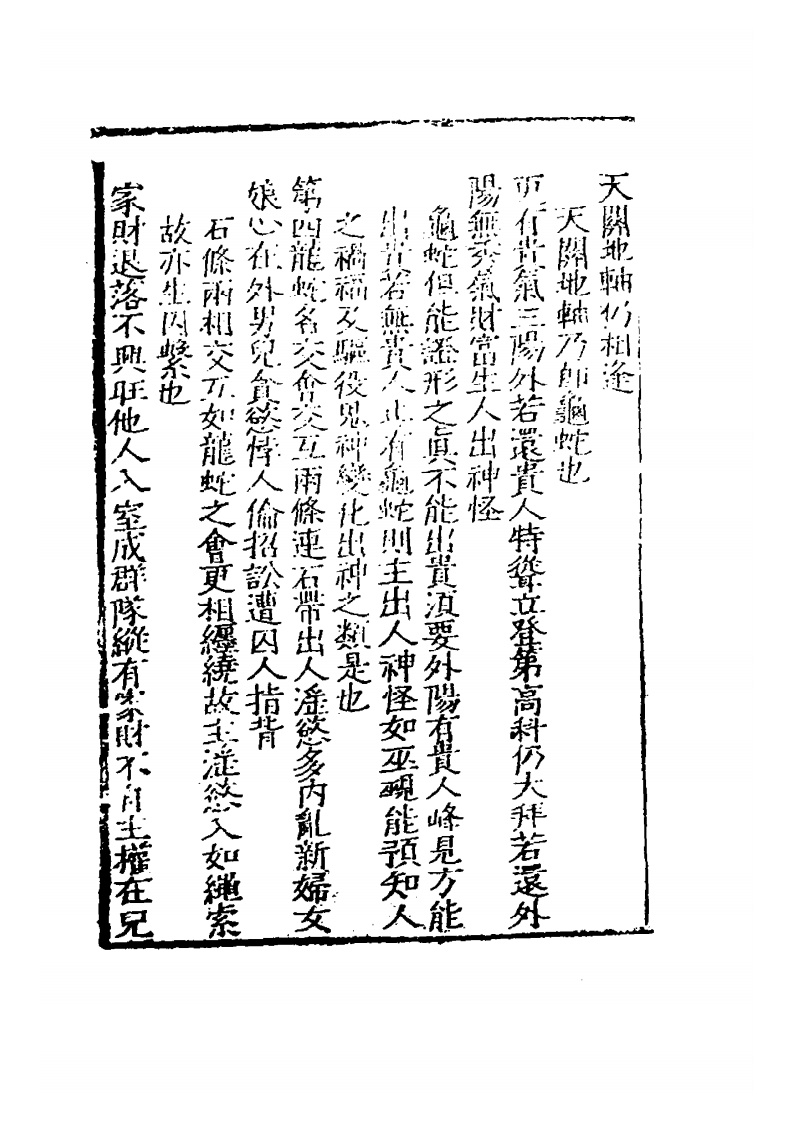 天關地軸仍相逢
天關地軸乃即龜蛇也
更有貴氣三陽外若還貴人特聳立登第高科仍大拜若還外
陽無秀氣財富生人出神怪
龜蛇但能證形之眞不能出貴須要外陽有貴人峰見方能
出貴若無貴人止有龜蛇則主出人神怪如巫覡能預知人
之禍福及驅役鬼神變化出神之類是也
第四龍蛇名交會交互兩條連石帶出人滛慾多內亂新婦女
娘心在外男兒貪慾悖人倫招訟遭囚人指背
石條兩相交互如龍蛇之會更相纒繞故主滛慾入如繩索
故亦生囚繫也
家財退落不興旺他人入室成群隊縱有家財不自主權在兄